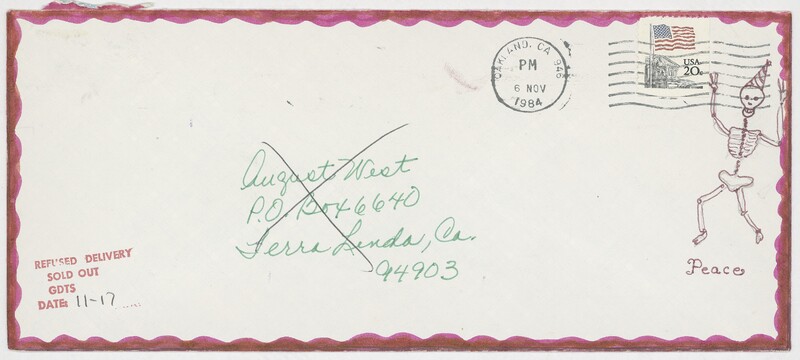 OAKLAND, CA 946
PM
6 NOV
1984
USA
20c
August West
P.O. Box 6640
Terra Linda, Ca.
94903
REFUSED DELIVERY
SOLD OUT
GDTS
DATE: 11-17
Peace